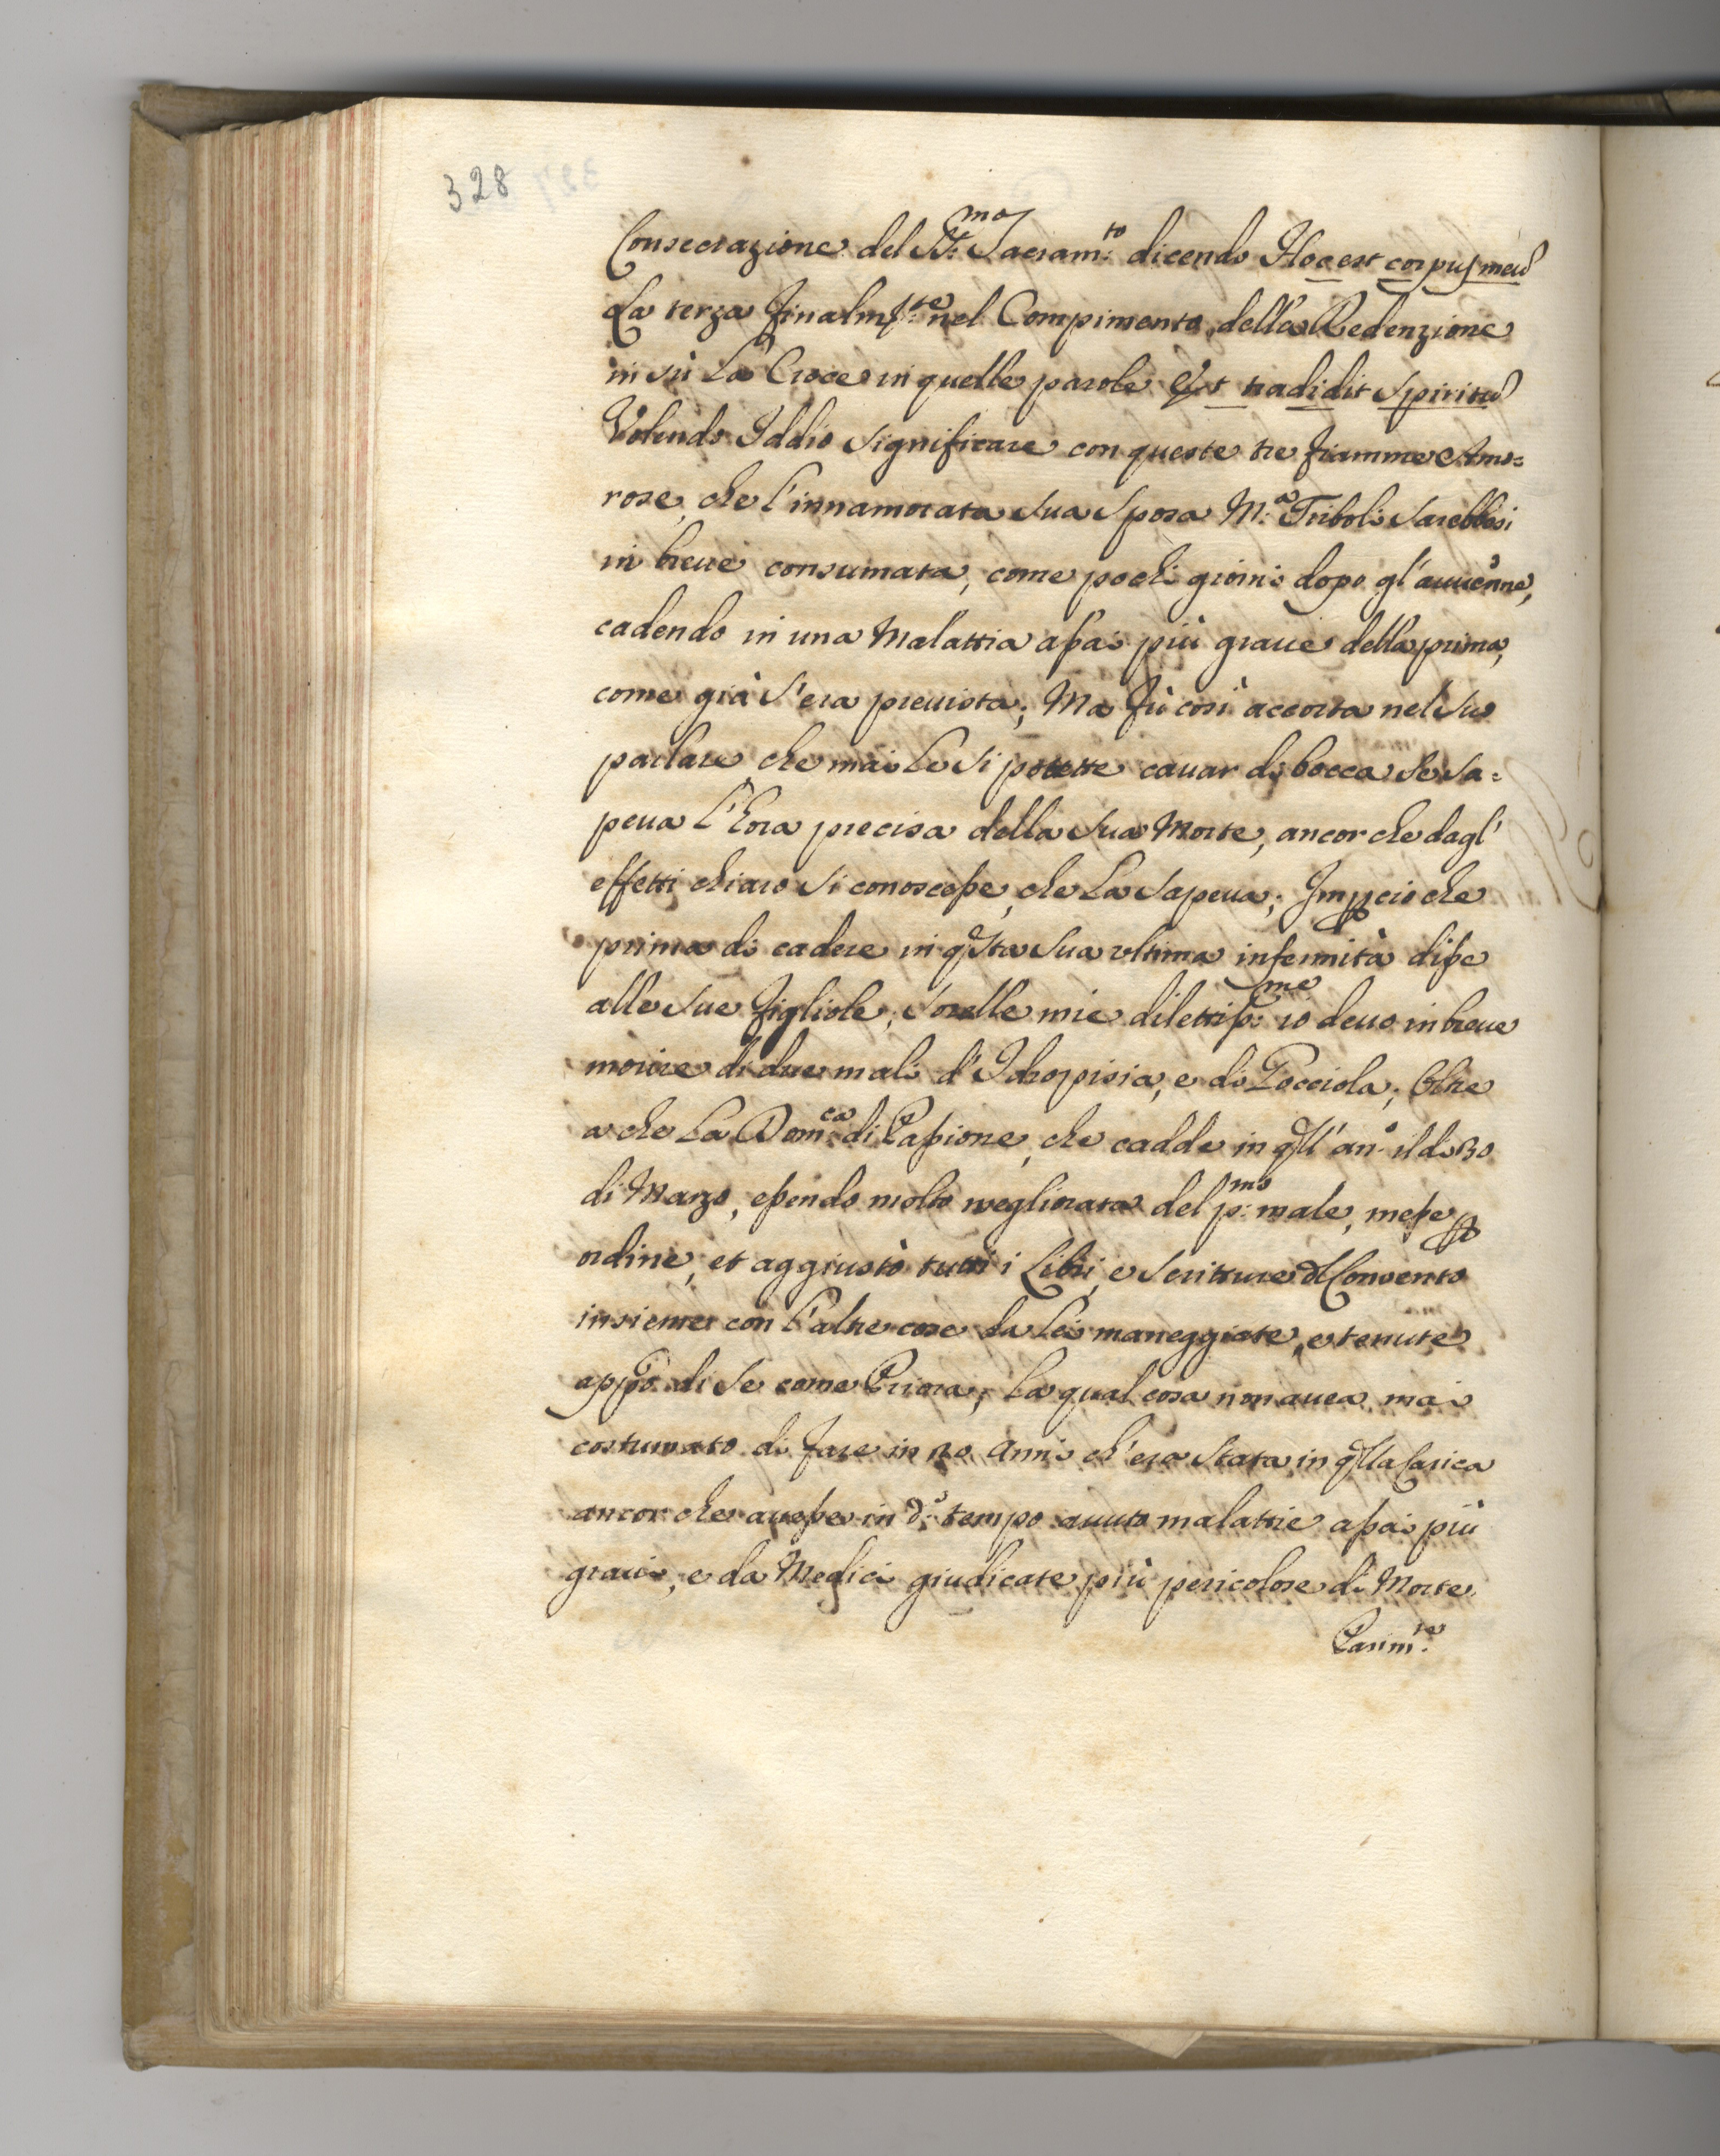 328
Consecrazione del SS.mo Sacram.to dicendo Hoc est corpus meũ
La terza finalm.te nel Compimento della Redenzione
in sù la Croce in quelle parole Et tradidit Spiritũ
Volendo Iddio significare con queste tre fiamme Amo=
rose, che l'innamorata sua Sposa M.a Triboli sarebbesi
in breue consumata, come pochi giorni dopo gl'auuenne,
cadendo in una Malattia assai più graue della prima,
come già s'era preuista; Ma fù così accorta nel suo
parlare che mai le si potette cauar di bocca se sa=
peua l'hora precisa della sua Morte, ancor che dagl'
effetti chiaro si conoscesse, che la sapeua; Imp̱cio che
prima di cadere in q̃sta sua vltima infermità disse
alle sue figliole; Sorelle mie dilettiss.me io deuo in breue
morire di due mali d'Idropisia, e di Gocciola; Oltre
a che la Dom.ca di Passione, che cadde in q̃ll'an.o il di 30
di Marzo, essendo molto megliorata del p.mo male, messe p̱
ordine, et aggiustò tutti i Libri, e Scritture d̃l Conuento
insieme con l'altre cose da lei maneggiate, e tenute
app̃o di se come Priora; la qual cosa non auea mai
costumato di fare in 20 anni ch'era stata in q̃lla Carica
ancor che auesse in d.o tempo auuto malattie assai più
graui, e da Medici giudicate più pericolose di Morte.
Parim.te